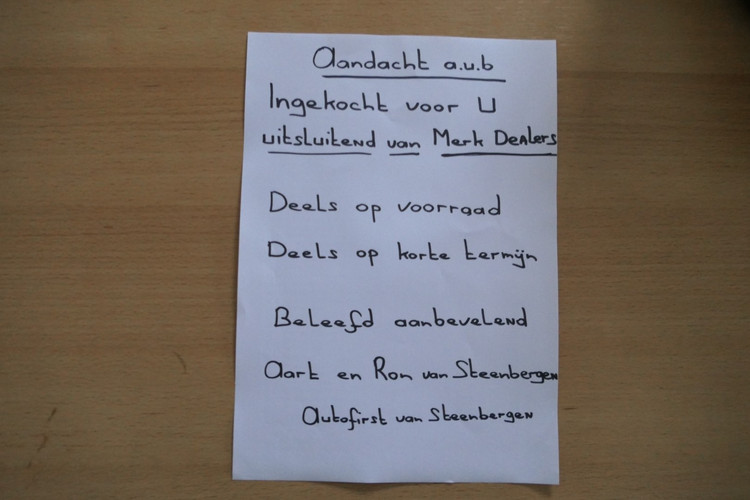 Aandacht a.u.b
Ingekocht voor U
uitsluitend van Merk Dealers
Deels op voorraad
Deels op korte termijn
Beleefd aanbevelend
Aart en Ron van Steenbergen
Autofirst van Steenbergen